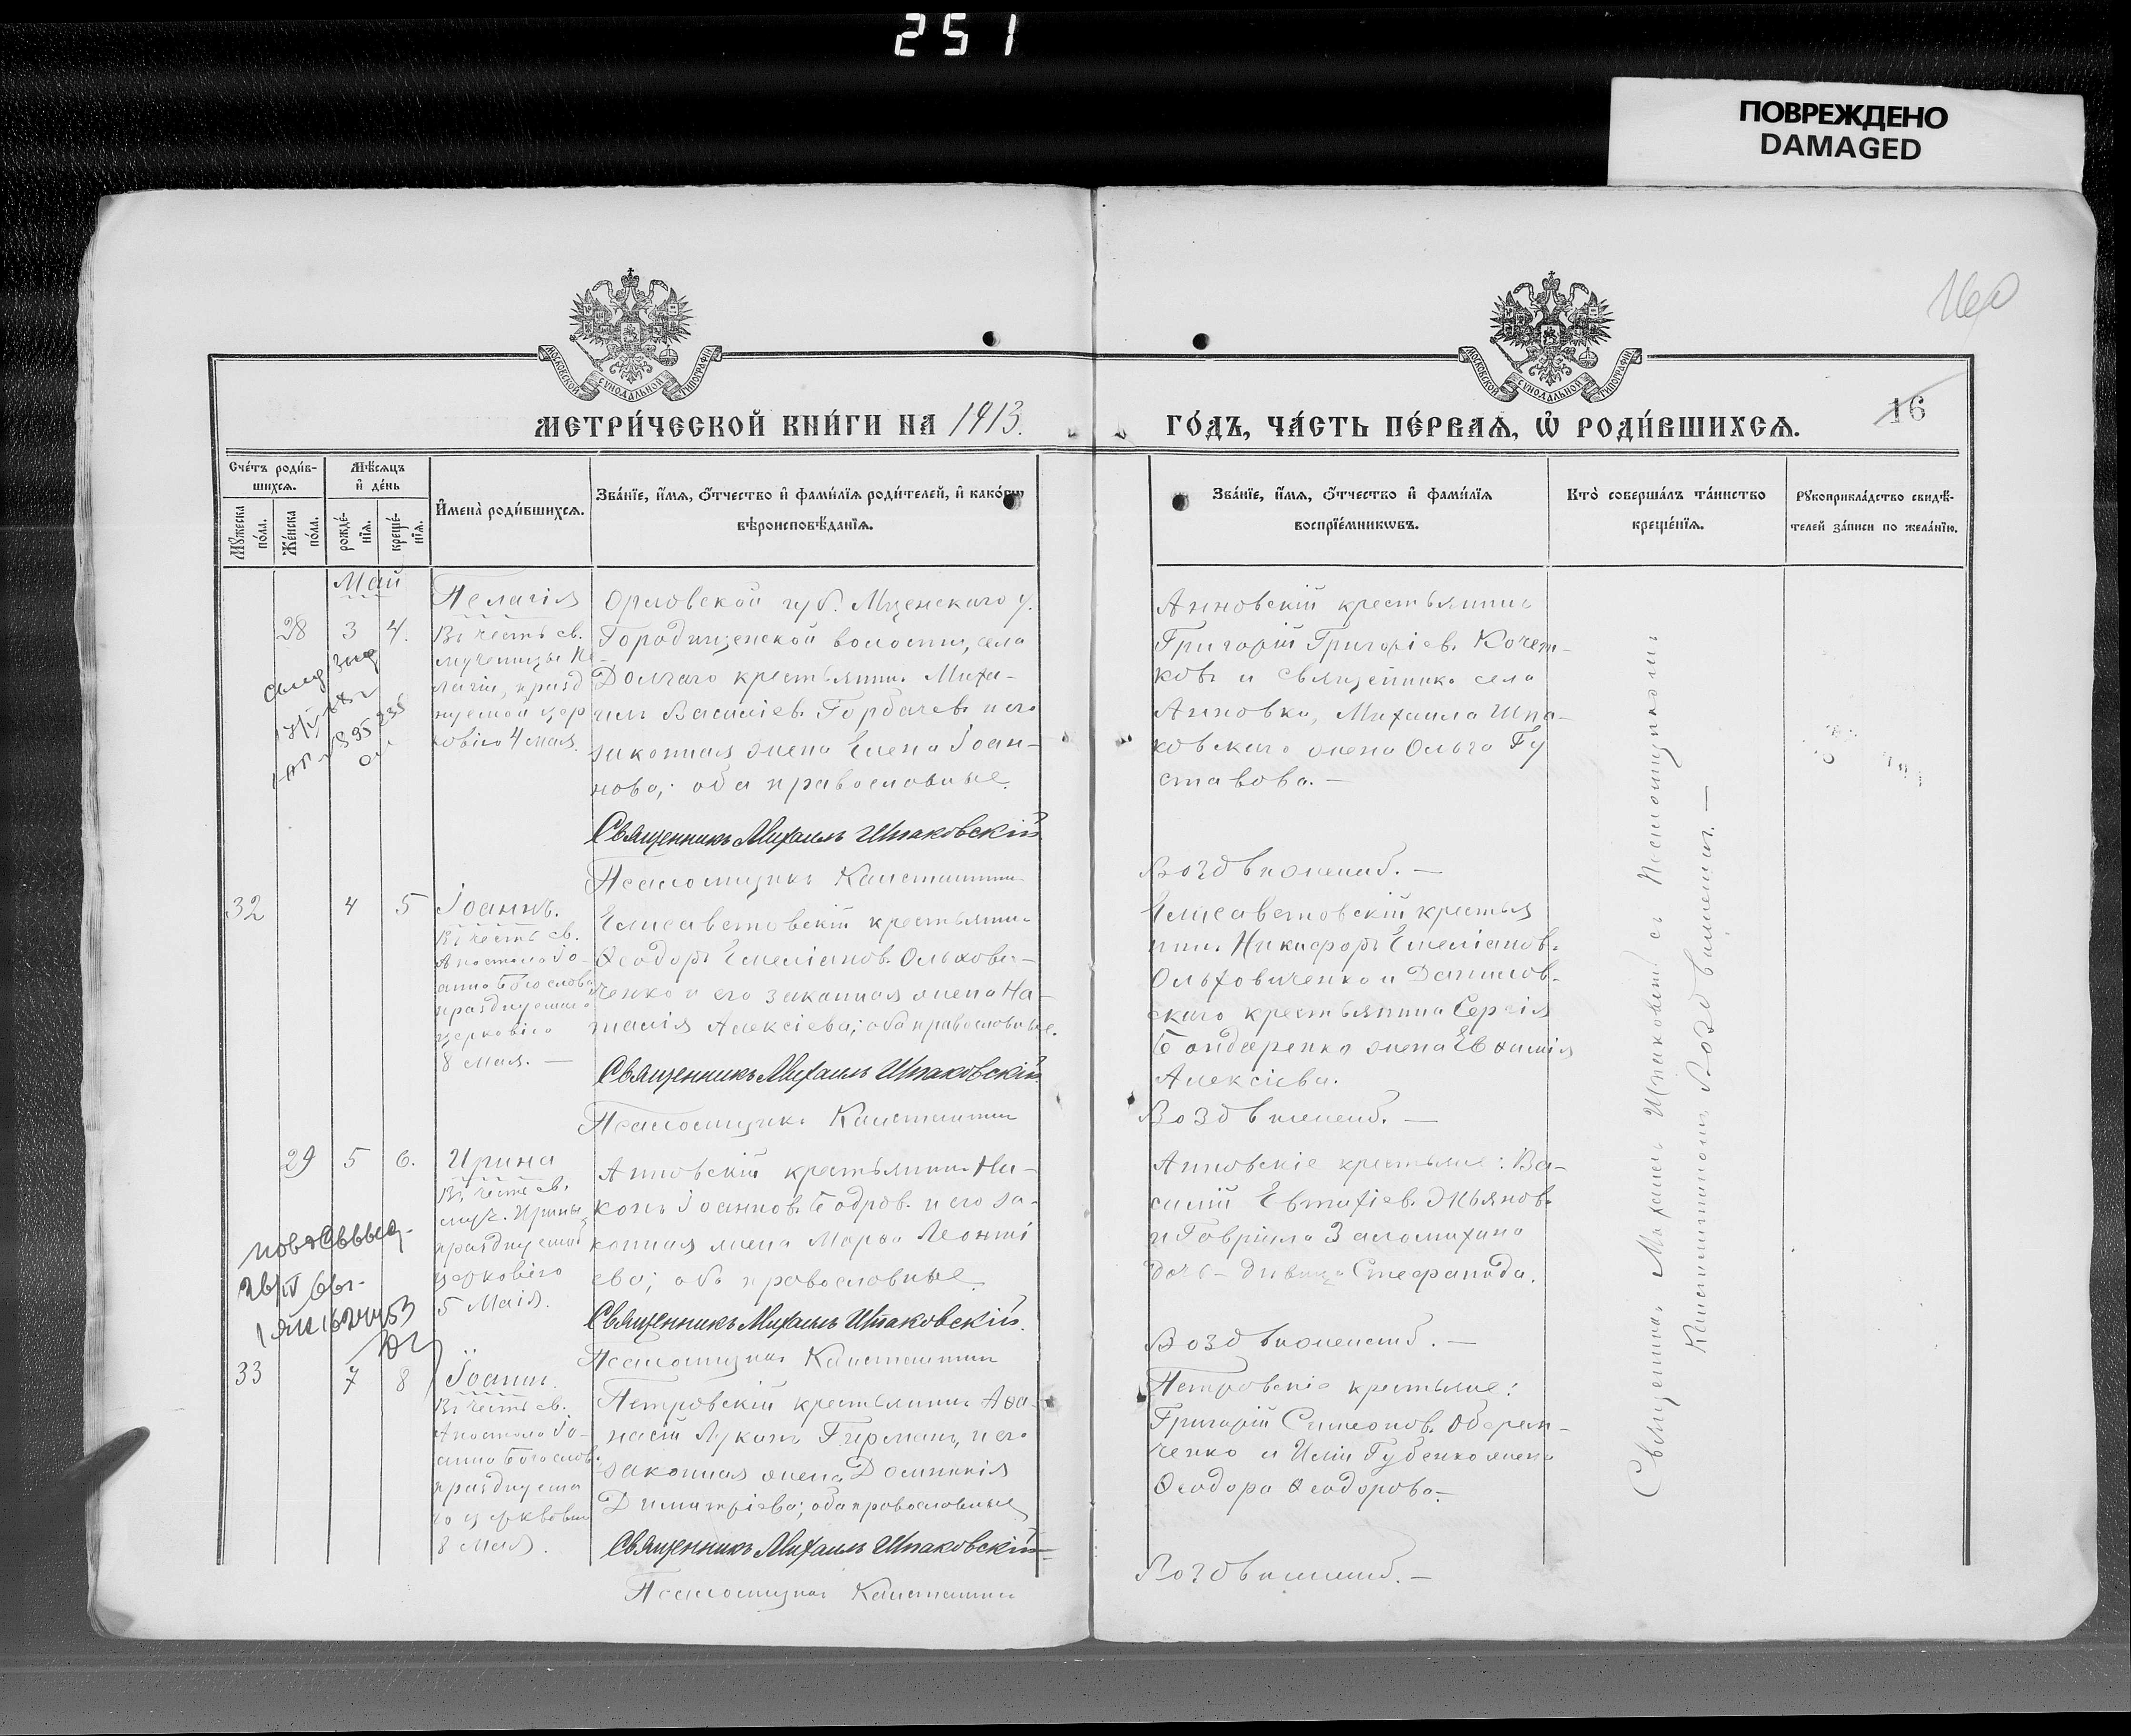 251
ПОВРЕЖДЕНО
DAMAGED
160
МОСКОВСКОЙ СѴНОДАЛЬНОЙ ТИПОГРАФІИ
МОСКОВСКОЙ СѴНОДАЛЬНОЙ ТИПОГРАФІИ
МЕТРИ́ЧЕСКОЙ КНИ́ГИ НА 1913.
ГО́ДЪ, ЧА́СТЬ ПЕ́РВАѦ, Ѡ҆ РОДИ́ВШИХСѦ.
16
Сче́тъ роди́в-
шихсѧ.
Мѣ́сѧцъ
и҆ де́нь
Мꙋ́жеска
по́ла.
Же́нска
по́ла.
рожде́-
нїѧ.
креще́-
нїѧ.
И҆мена̀ роди́вшихсѧ.
Зва́нїе, и҆́мѧ, ѻ҆́тчество и҆ фами́лїѧ роди́телей, и҆ како́гѡ
вѣроисповѣ́данїѧ.
Зва́нїе, и҆́мѧ, ѻ҆́тчество и҆ фами́лїѧ
воспрїе́мникѡвъ.
Кто̀ соверша́лъ та́инство
креще́нїѧ.
Рꙋкоприкла́дство свидѣ́-
телей за́писи по жела́нїю.
Май
28 3 4.
Пелагія
Въ честь св.
мученицы Пе-
лагіи, празд
нуемой цер
ковію 4 мая.
Орловской губ. Мценскаго у.
Городищенской волости, села
Долгаго крестьянинъ Миха-
илъ Василіевъ Горбачевъ и его
законная жена Елена Іоан-
нова; оба православные.
Священникъ Михаилъ Шпаковскій
Псаломщикъ Константинъ
Анновскій крестьянинъ
Григорій Григоріевъ Кочет-
ковъ и священника села
Анновки, Михаила Шпа-
ковскаго жена Ольга Гу
ставова. —
Воздвиженскій. —
32 4 5
Іоаннъ.
Въ честь св.
Апостола Іо-
анна Богослова
празднуемаго
церковію
8 мая. —
Елисаветовскій крестьянинъ
Ѳеодоръ Емеліановъ Ольхови-
ченко и его законная жена На-
талія Алексіева; оба православные.
Священникъ Михаилъ Шпаковскій
Псаломщикъ Константинъ
Елисаветовскій крестья
нинъ Никифоръ Емеліановъ
Ольховиченко и Даниловъ-
скаго крестьянина Сергія
Бондаренко жена Евѳимія
Алексіева.
Воздвиженскій. —
29 5 6.
Ирина
Въ честь св.
муч. Ирины,
празднуемой
церковію
5 Маія.
Анновскій крестьянинъ Ни-
конъ Іоанновъ Бодровъ и его за-
конная жена Марѳа Леонті
ева; оба православные.
Священникъ Михаилъ Шпаковскій.
Псаломщикъ Константинъ
Анновскіе крестьяне: Ва-
силій Евтихіевъ
и Гавріила Заломихина
дочь – дѣвица Стефанида.
Воздвиженскій. —
33 7 8
Іоаннъ.
Въ честь св.
Апостола Іо-
анна Богослова
празднуема
го церковію
8 Мая.
Петровскій крестьянинъ Аѳа-
насій Лукинъ Гирманъ, и его
законная жена Домникія
Димитріева; оба православные
Священникъ Михаилъ Шпаковскій
Псаломщикъ Константинъ
Петровскіе крестьяне:
Григорій Симеоновъ
ченко и Иліи Губенко жена
Ѳеодора Ѳеодорова. —
Воздвиженскій. —
Священникъ Михаилъ Шпаковскій съ Псаломщикомъ
Константиномъ Воздвиженскимъ. —